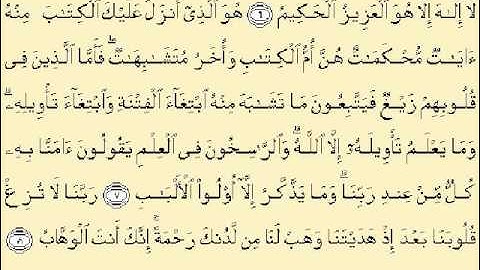 لَآ إِلَٰهَ إِلَّا هُوَ ٱلْعَزِيزُ ٱلْحَكِيمُ ٦ هُوَ ٱلَّذِىٓ أَنزَلَ عَلَيْكَ ٱلْكِتَٰبَ مِنْهُ
ءَايَٰتٌ مُّحْكَمَٰتٌ هُنَّ أُمُّ ٱلْكِتَٰبِ وَأُخَرُ مُتَشَٰبِهَٰتٌ ۖ فَأَمَّا ٱلَّذِينَ فِى
قُلُوبِهِمْ زَيْغٌ فَيَتَّبِعُونَ مَا تَشَٰبَهَ مِنْهُ ٱبْتِغَآءَ ٱلْفِتْنَةِ وَٱبْتِغَآءَ تَأْوِيلِهِۦ ۗ
وَمَا يَعْلَمُ تَأْوِيلَهُۥٓ إِلَّا ٱللَّهُ ۗ وَٱلرَّٰسِخُونَ فِى ٱلْعِلْمِ يَقُولُونَ ءَامَنَّا بِهِۦ
كُلٌّ مِّنْ عِندِ رَبِّنَا ۗ وَمَا يَذَّكَّرُ إِلَّآ أُو۟لُوا۟ ٱلْأَلْبَٰبِ ٧ رَبَّنَا لَا تُزِغْ
قُلُوبَنَا بَعْدَ إِذْ هَدَيْتَنَا وَهَبْ لَنَا مِن لَّدُنكَ رَحْمَةً ۚ إِنَّكَ أَنتَ ٱلْوَهَّابُ ٨